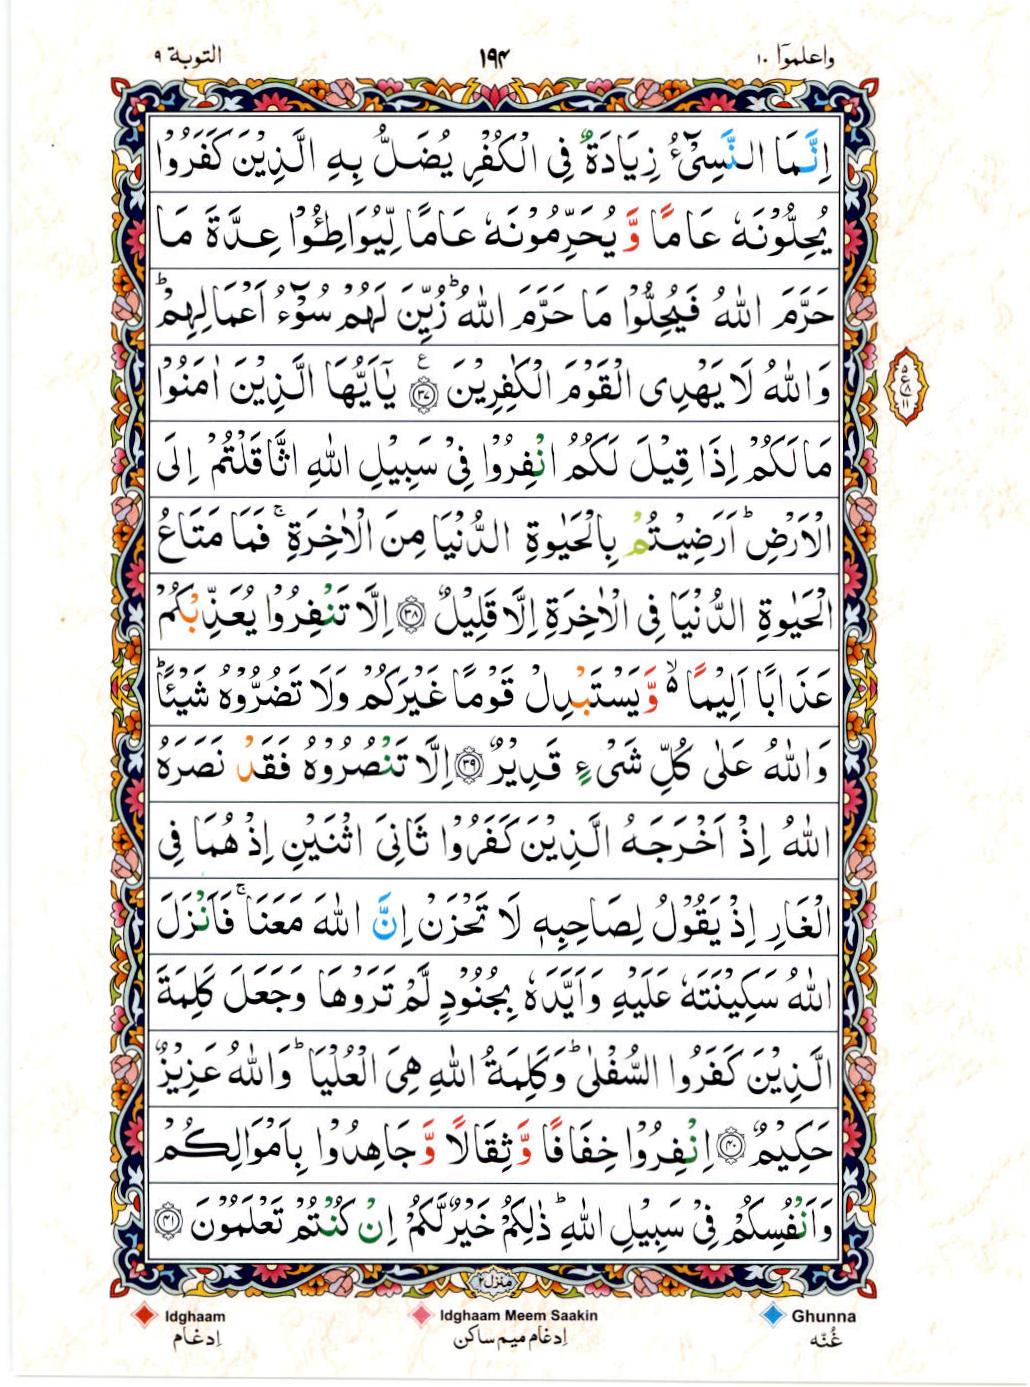 واعلموٓا ١٠
١٩٤
التوبة ٩
اِنَّمَا النَّسِیْٓءُ زِیَادَةٌ فِی الْكُفْرِ یُضَلُّ بِهِ الَّذِیْنَ كَفَرُوْا
یُحِلُّوْنَهٗ عَامًا وَّ یُحَرِّمُوْنَهٗ عَامًا لِّیُوَاطِـُٔوْا عِدَّةَ مَا
حَرَّمَ اللّٰهُ فَیُحِلُّوْا مَا حَرَّمَ اللّٰهُؕ زُیِّنَ لَهُمْ سُوْٓءُ اَعْمَالِهِمْؕ
وَ اللّٰهُ لَا یَهْدِی الْقَوْمَ الْكٰفِرِیْنَ ۠ ﴿۳۷﴾ یٰۤاَیُّهَا الَّذِیْنَ اٰمَنُوْا
مَا لَكُمْ اِذَا قِیْلَ لَكُمُ انْفِرُوْا فِیْ سَبِیْلِ اللّٰهِ اثَّاقَلْتُمْ اِلَی
الْاَرْضِؕ اَرَضِیْتُمْ بِالْحَیٰوةِ الدُّنْیَا مِنَ الْاٰخِرَةِۚ فَمَا مَتَاعُ
الْحَیٰوةِ الدُّنْیَا فِی الْاٰخِرَةِ اِلَّا قَلِیْلٌ ﴿۳۸﴾ اِلَّا تَنْفِرُوْا یُعَذِّبْكُمْ
عَذَابًا اَلِیْمًا ۙ۬ وَّ یَسْتَبْدِلْ قَوْمًا غَیْرَكُمْ وَ لَا تَضُرُّوْهُ شَیْـًٔاؕ
وَ اللّٰهُ عَلٰی كُلِّ شَیْءٍ قَدِیْرٌ ﴿۳۹﴾ اِلَّا تَنْصُرُوْهُ فَقَدْ نَصَرَهُ
اللّٰهُ اِذْ اَخْرَجَهُ الَّذِیْنَ كَفَرُوْا ثَانِیَ اثْنَیْنِ اِذْ هُمَا فِی
الْغَارِ اِذْ یَقُوْلُ لِصَاحِبِهٖ لَا تَحْزَنْ اِنَّ اللّٰهَ مَعَنَاۚ فَاَنْزَلَ
اللّٰهُ سَكِیْنَتَهٗ عَلَیْهِ وَ اَیَّدَهٗ بِجُنُوْدٍ لَّمْ تَرَوْهَا وَ جَعَلَ كَلِمَةَ
الَّذِیْنَ كَفَرُوا السُّفْلٰیؕ وَ كَلِمَةُ اللّٰهِ هِیَ الْعُلْیَاؕ وَ اللّٰهُ عَزِیْزٌ
حَكِیْمٌ ﴿۴۰﴾ اِنْفِرُوْا خِفَافًا وَّ ثِقَالًا وَّ جَاهِدُوْا بِاَمْوَالِكُمْ
وَ اَنْفُسِكُمْ فِیْ سَبِیْلِ اللّٰهِؕ ذٰلِكُمْ خَیْرٌ لَّكُمْ اِنْ كُنْتُمْ تَعْلَمُوْنَ ﴿۴۱﴾
۵
ع
۸
۱۱
منزل ۲
Idghaam
Idghaam Meem Saakin
Ghunna
اِدغام
اِدغام میم ساکن
غُنّه